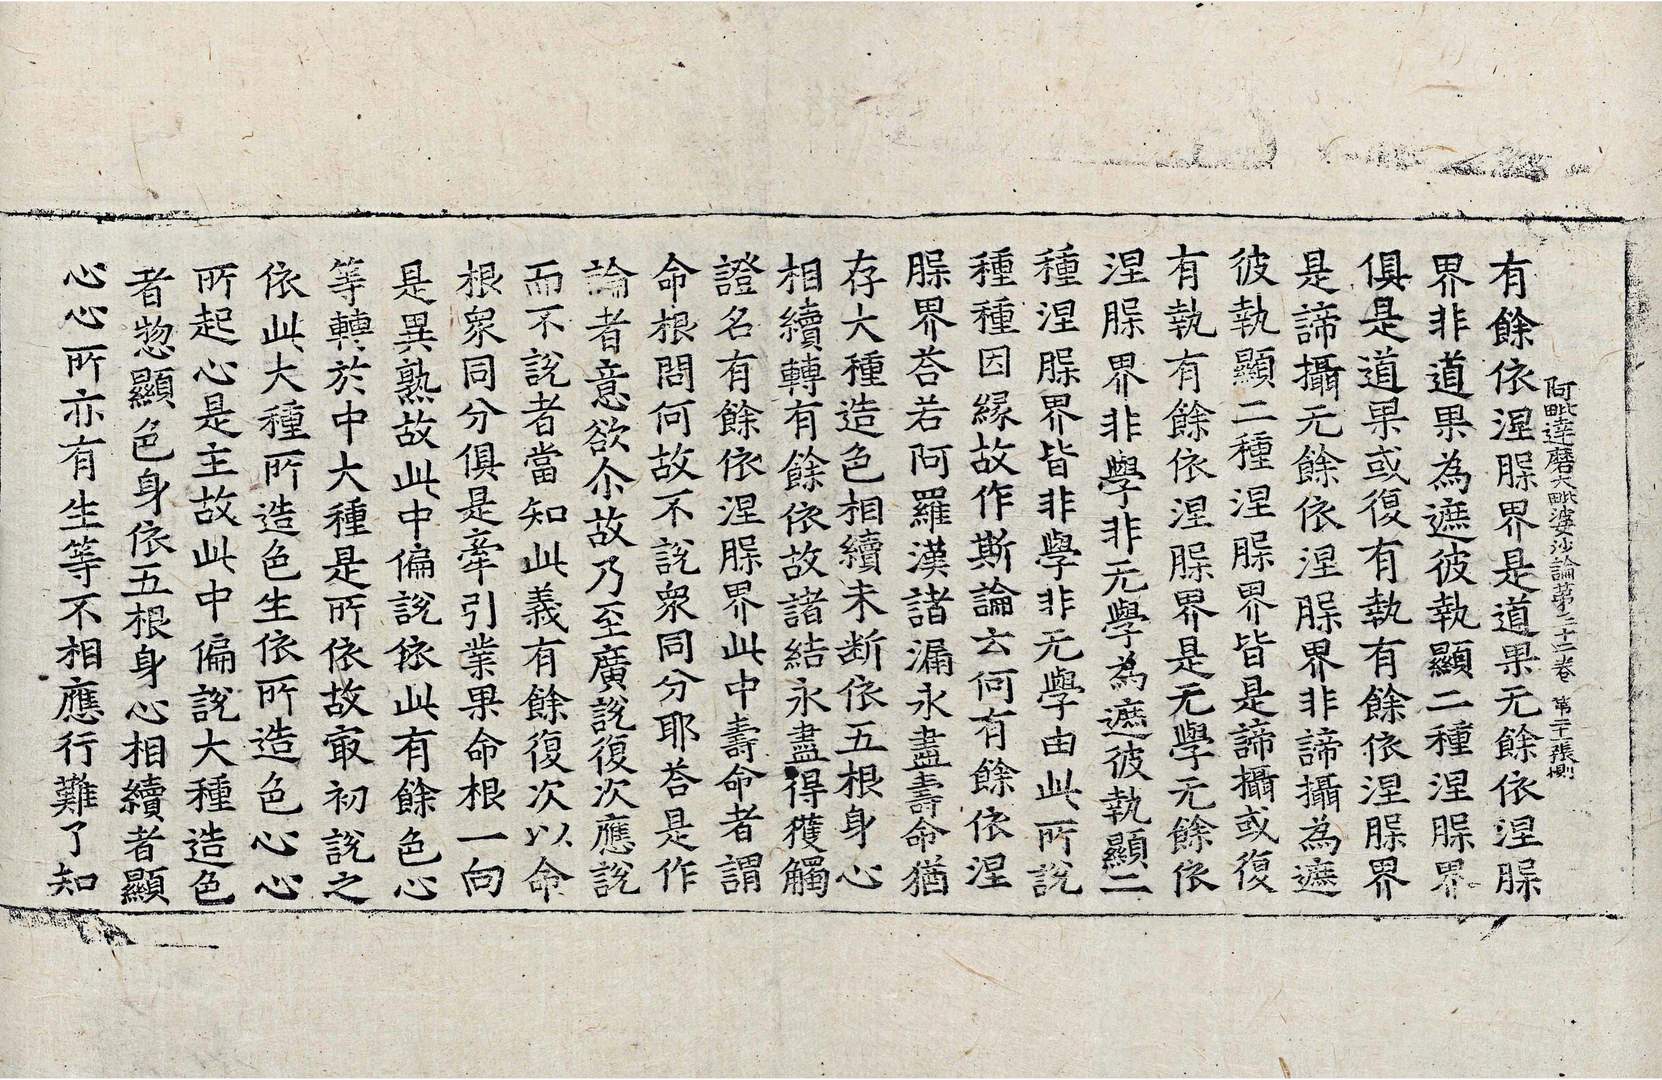 阿毗達磨大毗婆沙論第三十二卷 第二張 惻
有餘依涅膎界是道果无餘依涅膎
界非道果為遮彼執顯二種涅膎界
俱是道果或復有執有餘依涅膎界
是諦攝无餘依涅膎界非諦攝為遮
彼執顯二種涅膎界皆是諦攝或復
有執有餘依涅膎界是无學无餘依
涅膎界非學非无學為遮彼執顯二
種涅膎界皆非學非无學由此所說
種種因緣故作斯論云何有餘依涅
膎界荅若阿羅漢諸漏永盡壽命猶
存大種造色相續未断依五根身心
相續轉有餘依故諸結永盡得獲觸
證名有餘依涅膎界此中壽命者謂
命根問何故不說衆同分耶荅是作
論者意欲尒故乃至廣說復次應說
而不說者當知此義有餘復次以命
根衆同分俱是牽引業果命根一向
是異熟故此中偏說依此有餘色心
等轉於中大種是所依故㝡初說之
依此大種所造色生依所造色心心
所起心是主故此中偏說大種造色
者惣顯色身依五根身心相續者顯
心心所亦有生等不相應行難了知